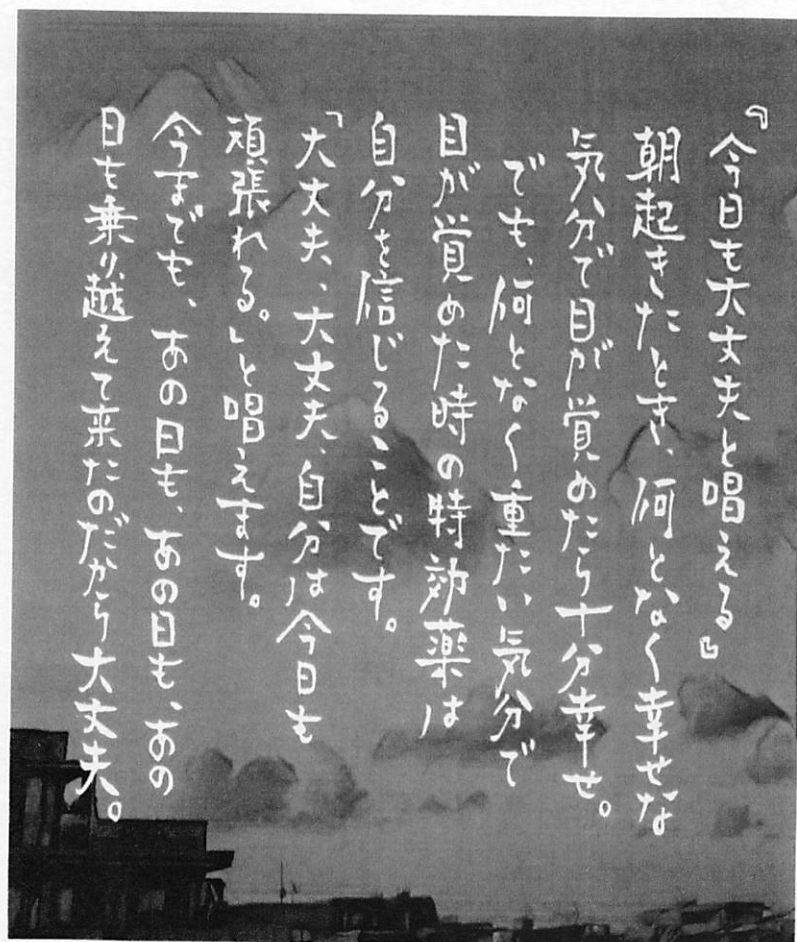 『今日も大丈夫と唱える』
朝起きたとき、何となく幸せな
気分で目が覚めたら十分幸せ。
でも、何となく重たい気分で
目が覚めた時の特効薬は
自分を信じることです。
「大丈夫、大丈夫、自分は今日も
頑張れる。」と唱えます。
今までも、あの日も、あの日も、あの
日も乗り越えて来たのだから大丈夫。